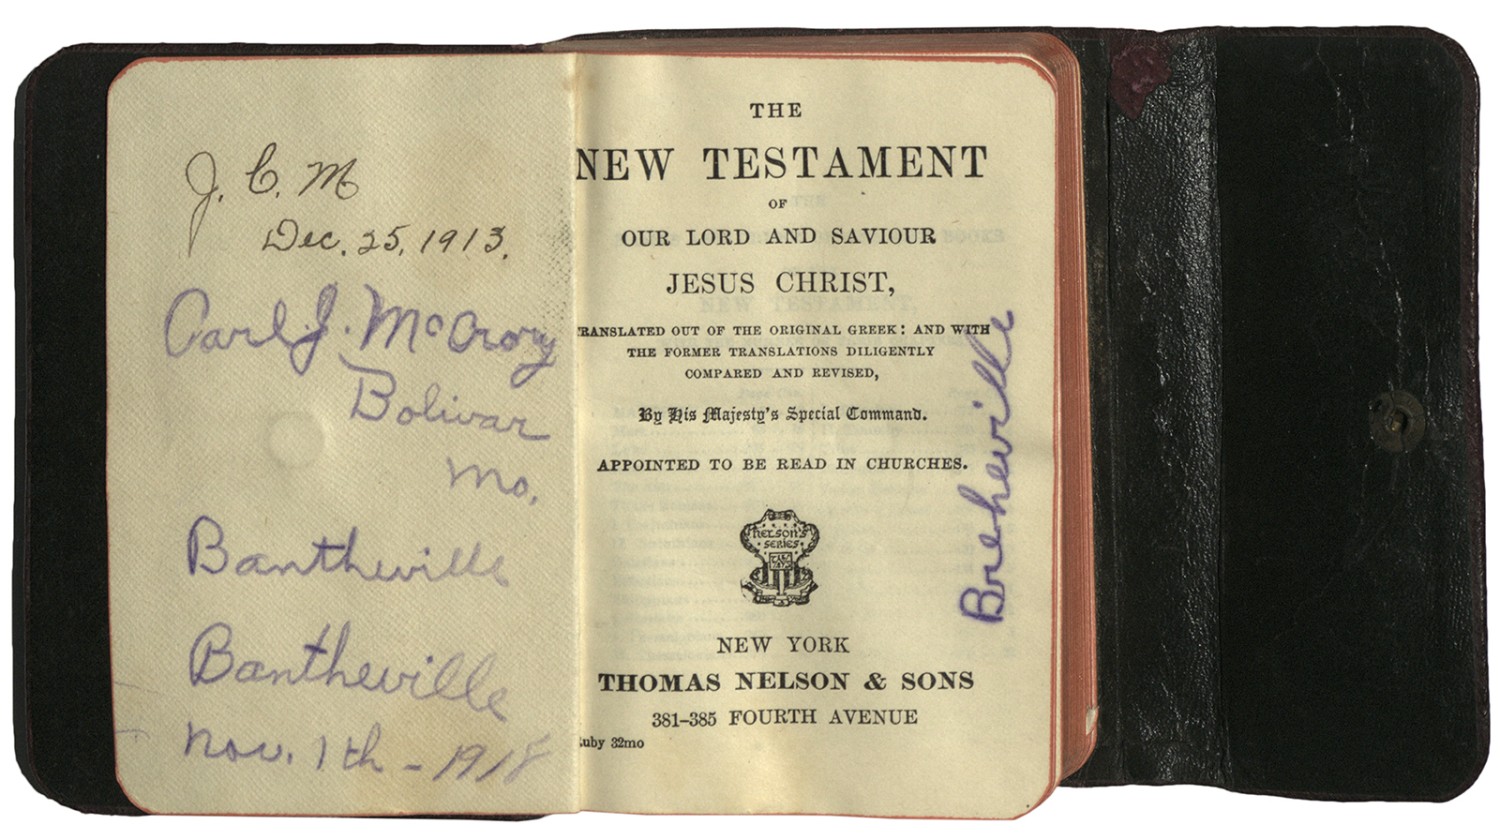 J. C. M
Dec. 25, 1913.
Carl J. McCrory
Bolivar
Mo.
Bantheville
Bantheville
Nov. 1th - 1918
THE
NEW TESTAMENT
OF
OUR LORD AND SAVIOUR
JESUS CHRIST,
TRANSLATED OUT OF THE ORIGINAL GREEK: AND WITH
THE FORMER TRANSLATIONS DILIGENTLY
COMPARED AND REVISED,
By His Majesty's Special Command.
APPOINTED TO BE READ IN CHURCHES.
NELSON'S
SERIES
NEW YORK
THOMAS NELSON & SONS
381-385 FOURTH AVENUE
uby 32mo
Breheville